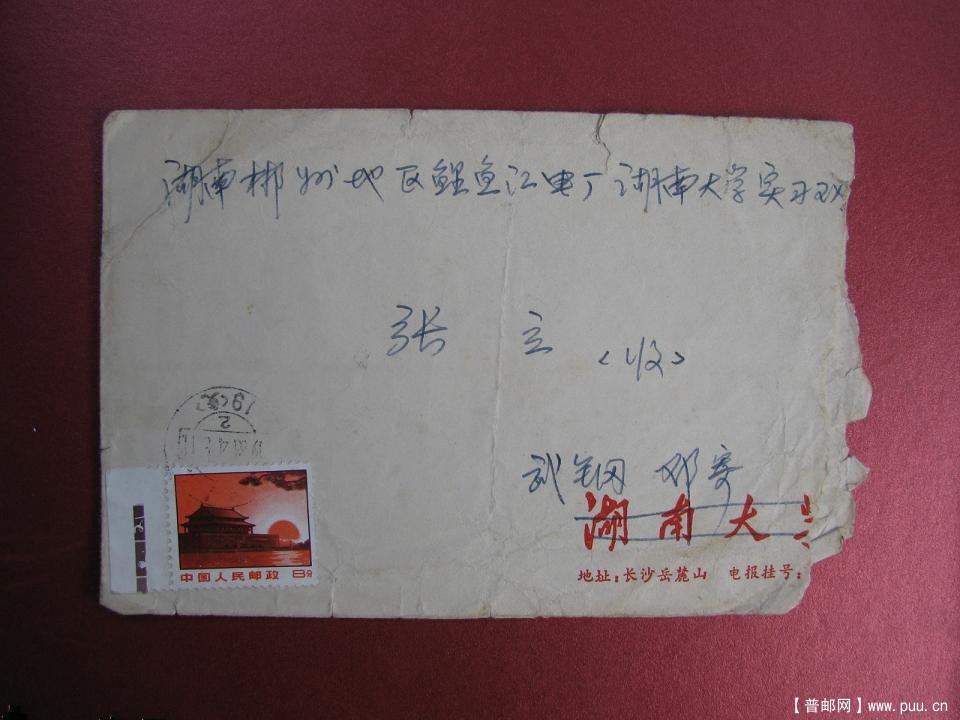 湖南郴州地区鲤鱼江电厂湖南大学实习队
张立 <收>
武钢 邓寄
湖南大学
地址：长沙岳麓山 电报挂号：
中国人民邮政 8分
【普邮网】www.puu.cn